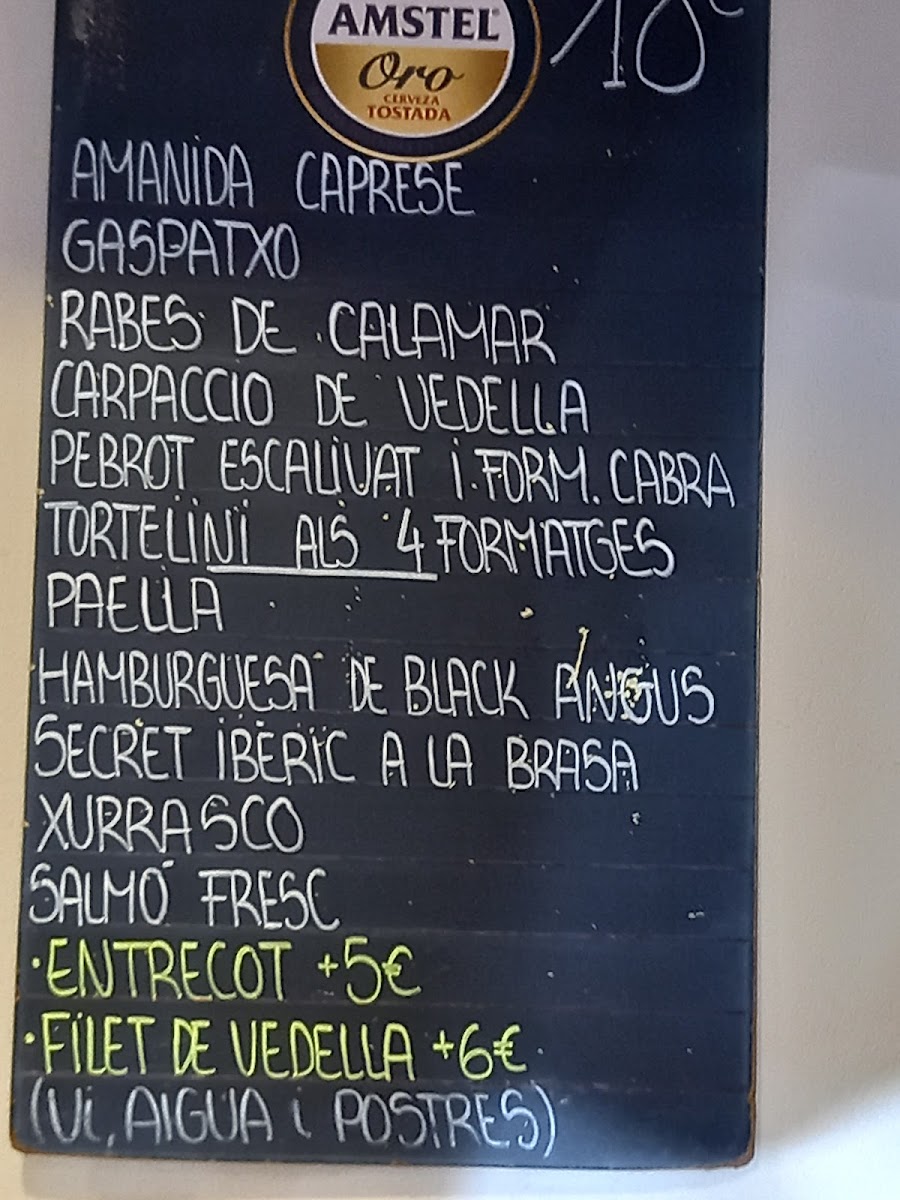 AMSTEL
Oro
CERVEZA
TOSTADA
18€
AMANIDA CAPRESE
GASPATXO
RABES DE CALAMAR
CARPACCIO DE VEDELLA
PEBROT ESCALIVAT I FORM. CABRA
TORTELINI ALS 4 FORMATGES
PAELLA
HAMBURGUESA DE BLACK ANGUS
SECRET IBERIC A LA BRASA
XURRASCO
SALMÓ FRESC
·ENTRECOT +5€
·FILET DE VEDELLA +6€
(Vi, AIGUA i POSTRES)